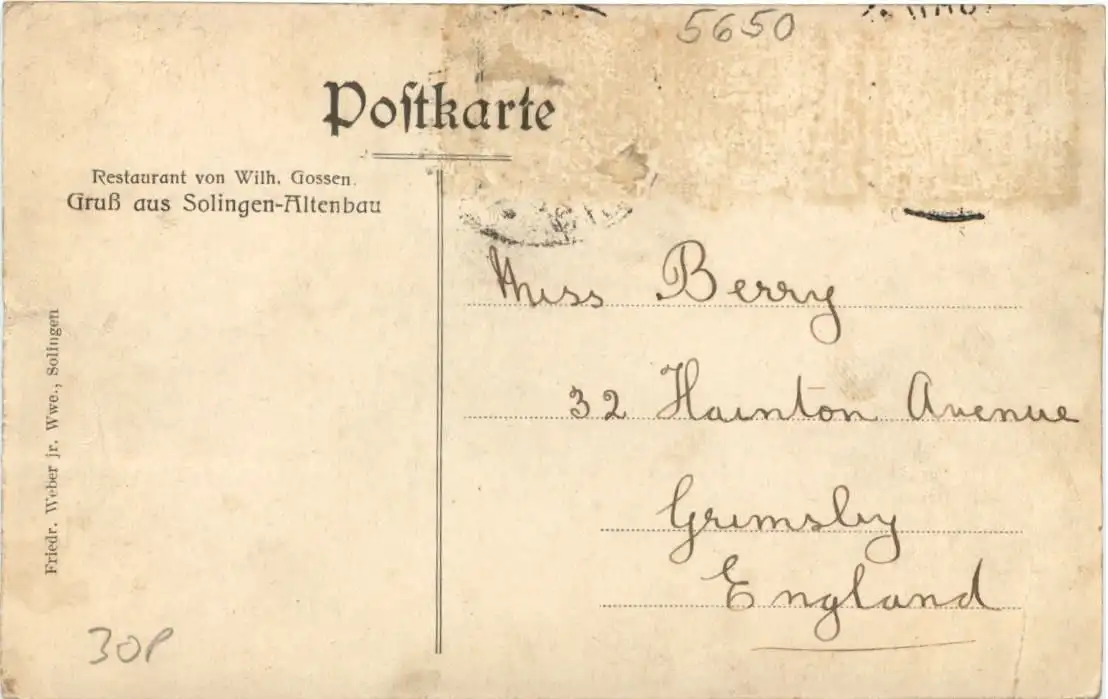 5650
Poſtkarte
Restaurant von Wilh. Gossen.
Gruß aus Solingen-Altenbau
Friedr. Weber jr. Wwe., Solingen
Miss Berry
32 Hainton Avenue
Grimsby
England
30P